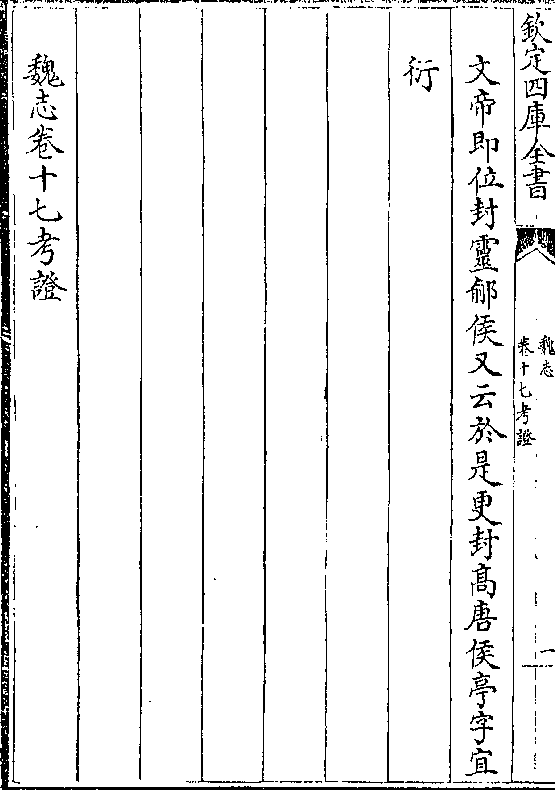 欽定四庫全書
魏志
卷十七考證
一
文帝即位封靈鄃侯又云於是更封髙唐侯亭字宜
衍
魏志卷十七考證